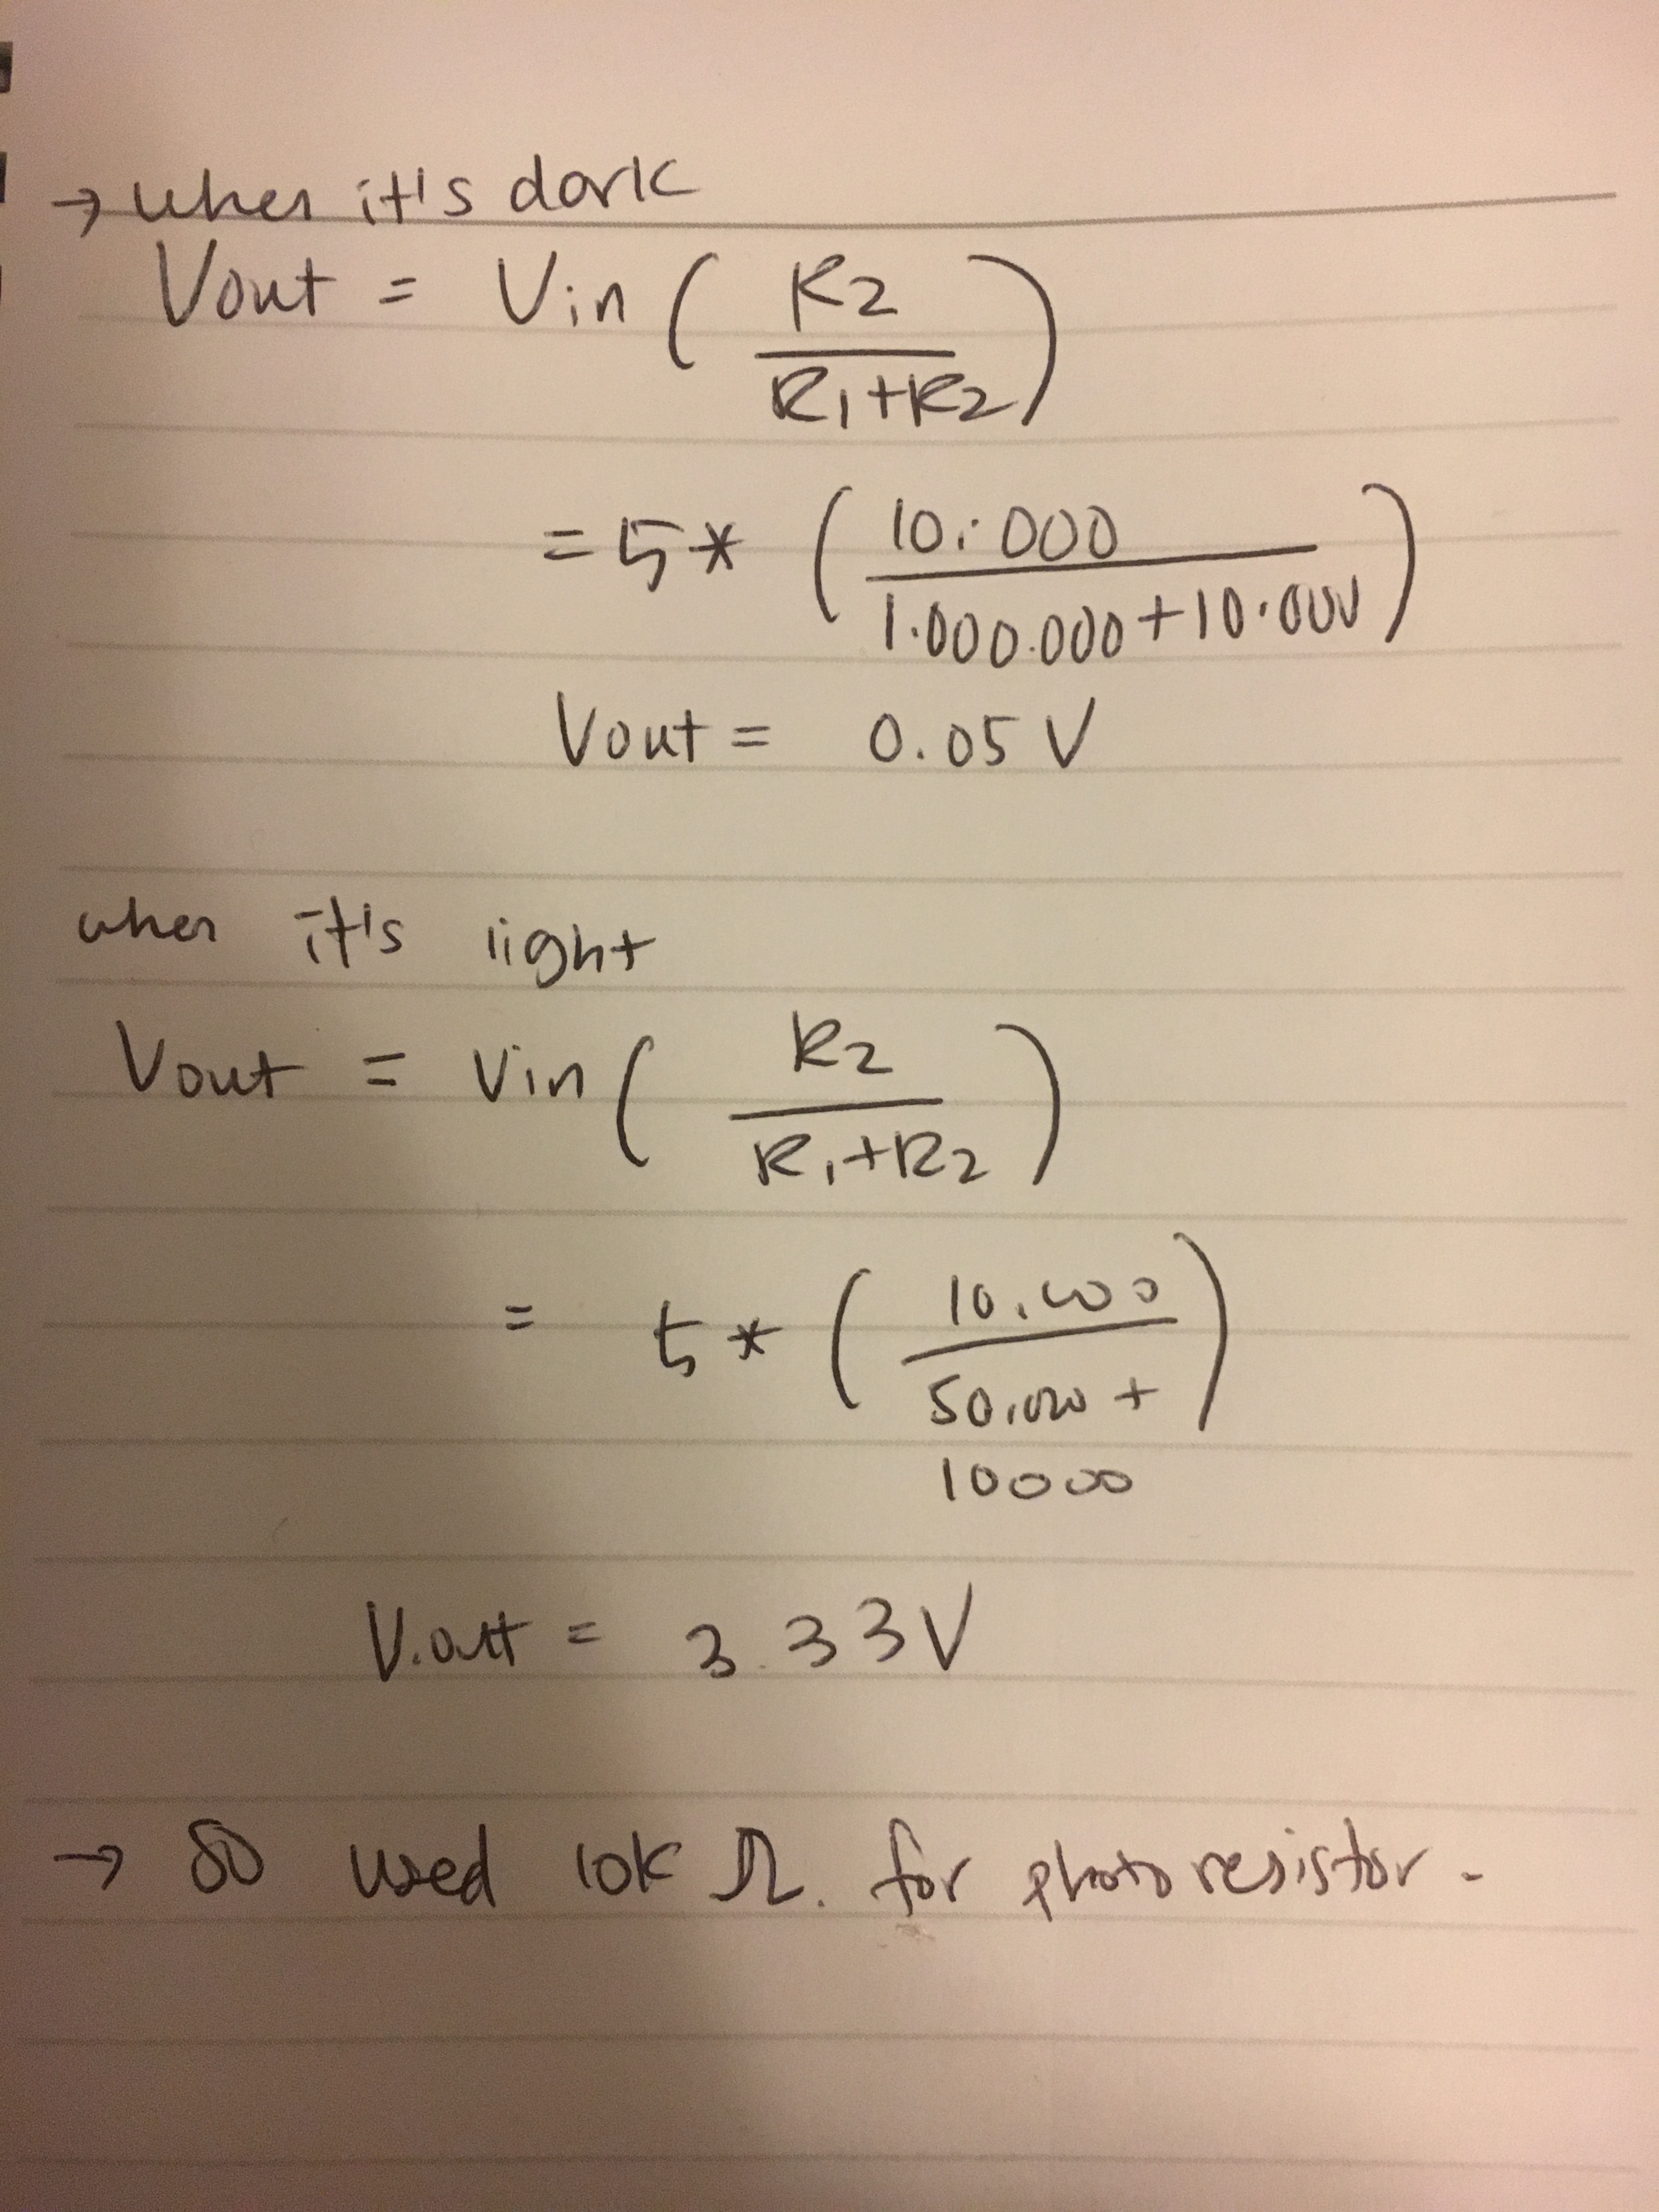 → when it's dark
Vout = Vin ( R2 / R1+R2 )
= 5 * ( 10.000 / 1.000.000 + 10.000 )
Vout = 0.05 V
when it's light
Vout = Vin ( R2 / R1+R2 )
= 5 * ( 10.000 / 50.000 +
10000 )
V.out = 3.33 V
→ so used 10K Ω. for photoresistor.